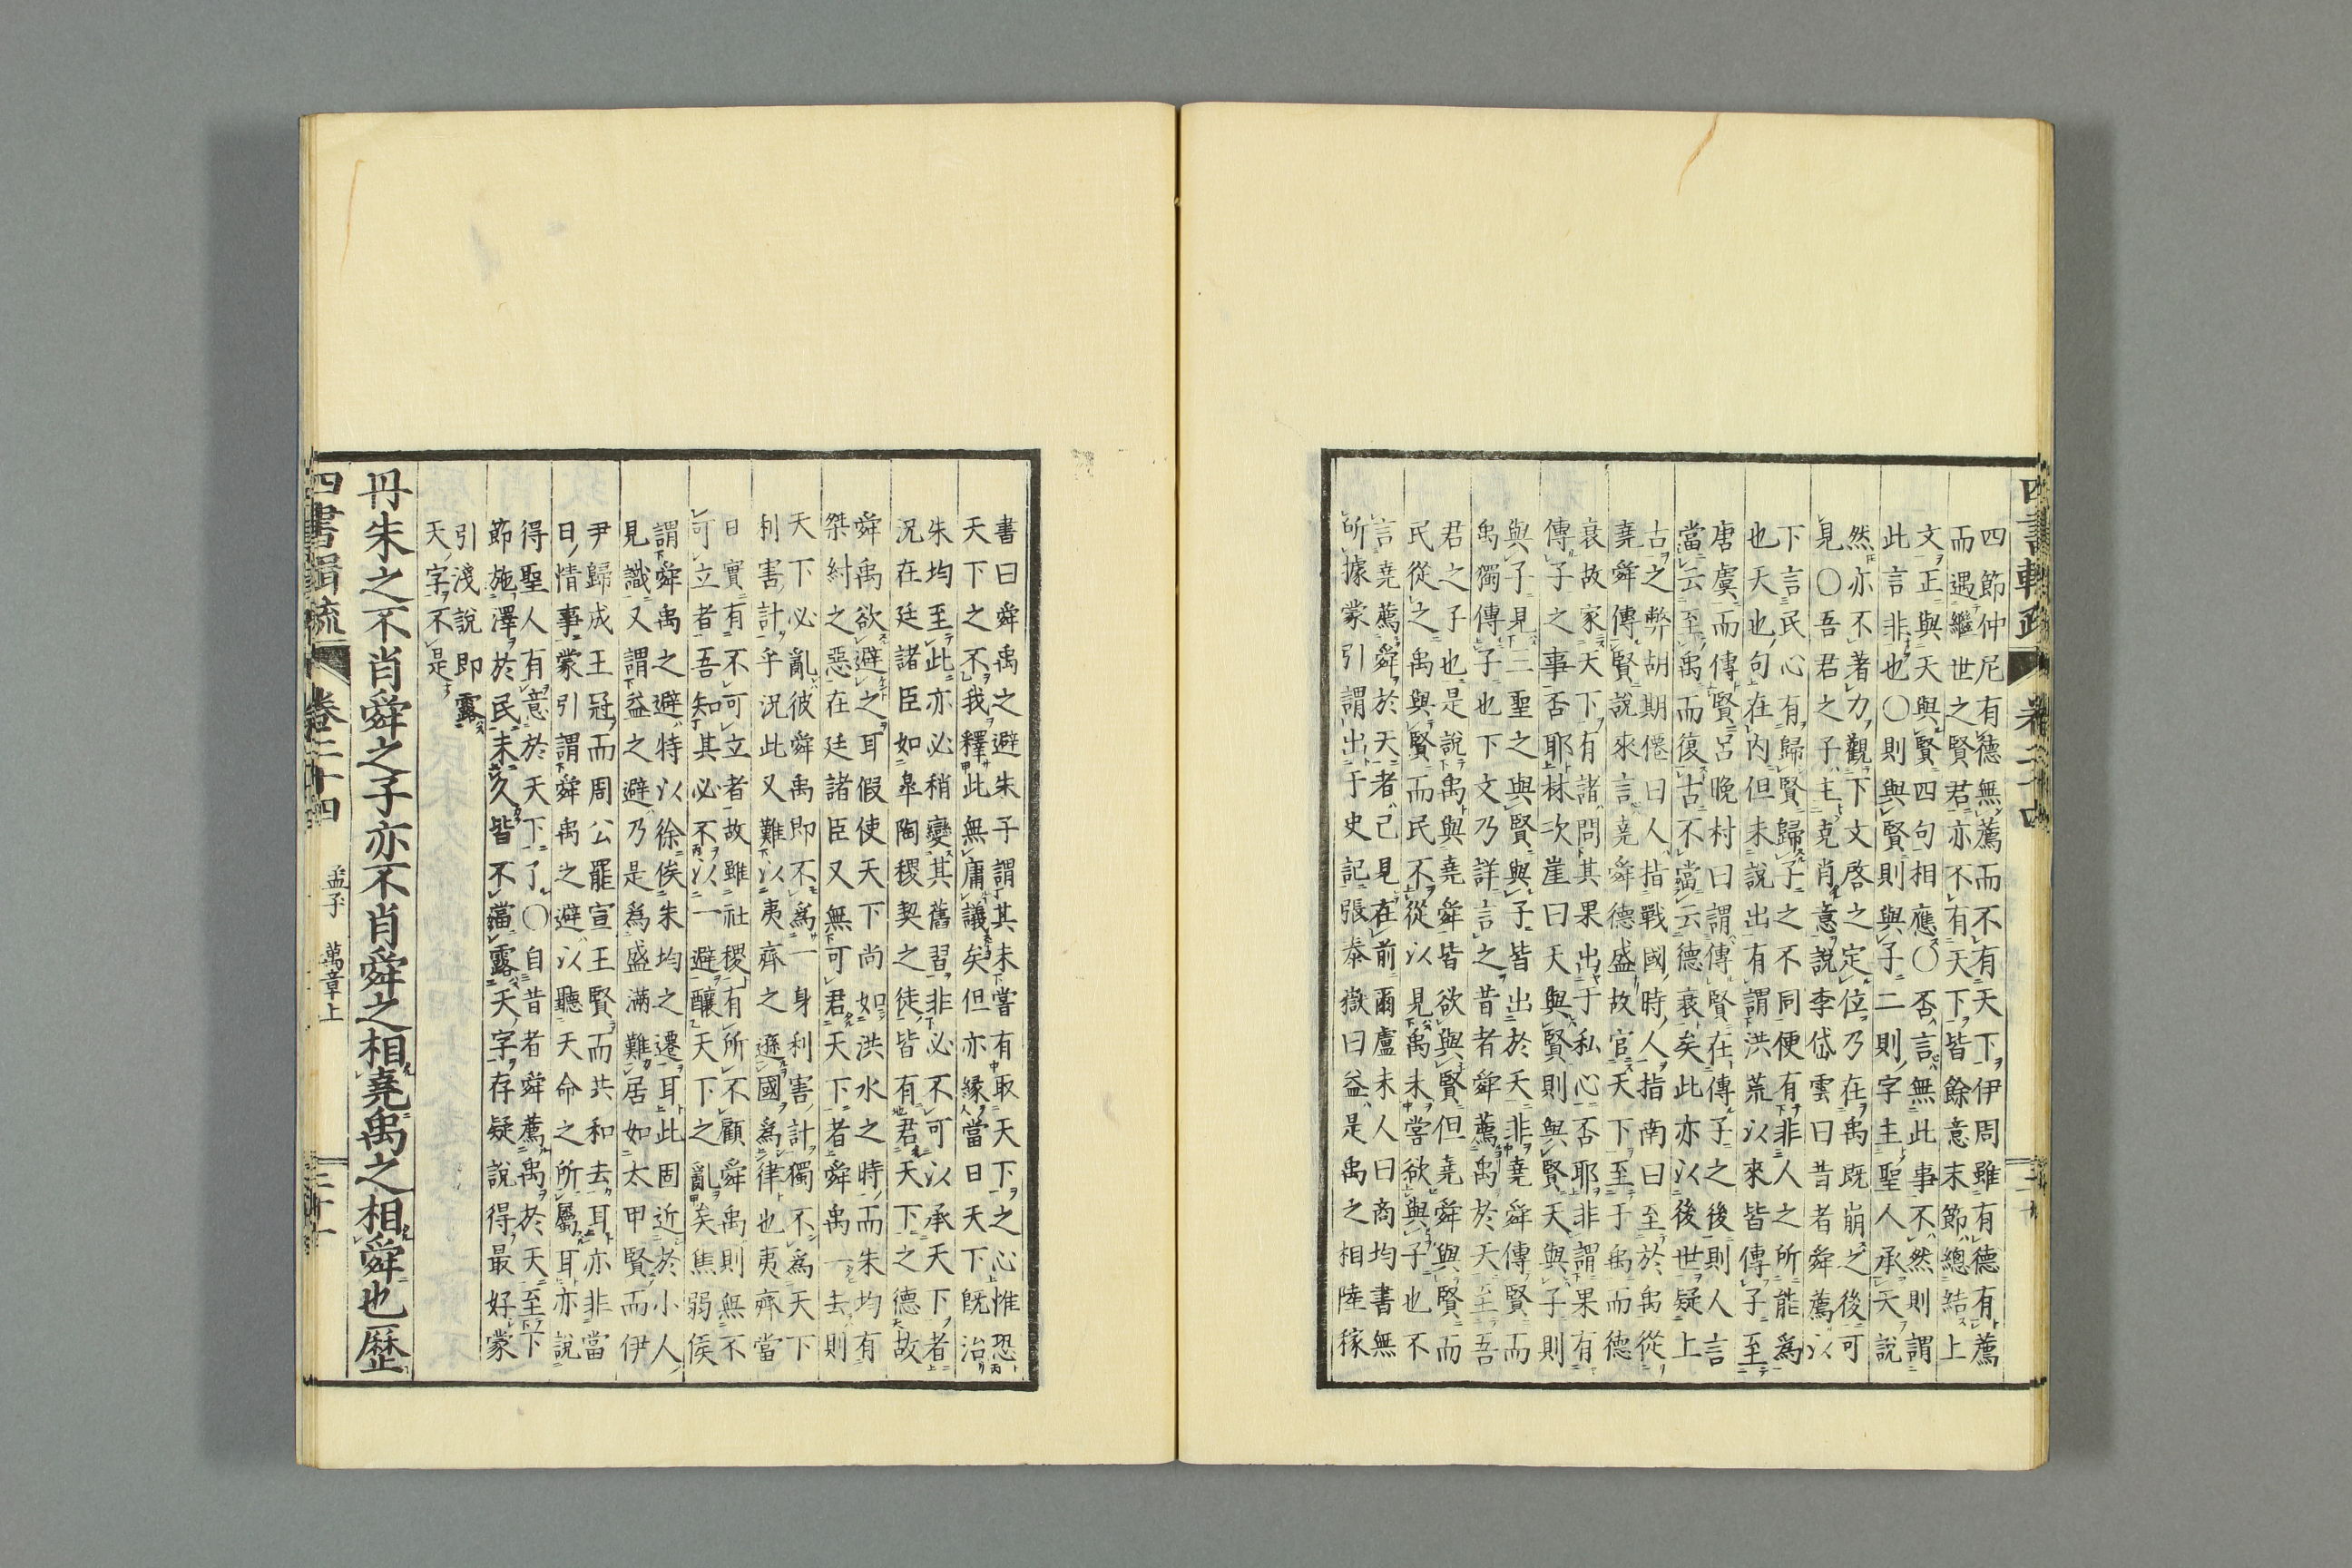 四節仲尼有德無薦而不有天下伊周雖有德有薦
而遇繼世之賢君亦不有天下皆餘意末節總結上
文正與天與賢四句相應〇否言無此事不然則謂
此言非也〇則與賢則與子二則字主聖人承天說
然亦不著力觀下文啓之定位乃在禹既崩之後可
見〇吾君之子主克肖意說李岱雲曰昔者舜薦以
下言民心有歸賢歸子之不同便有非人之所能為
也天也句在内但未說出有謂洪荒以來皆傳子至
唐虞而傳賢呂晚村曰謂傳賢在傳子之後則人言
當云至禹而復古不當云德衰矣此亦以後世疑上
古之弊胡期僊曰人指戰國時人指南曰至於禹從
堯舜傳賢說來言堯舜德盛故官天下至于禹而德
衰故家天下有諸問其果出于私心否耶非謂果有
傳子之事否耶林次崖曰天與賢則與賢天與子則
與子見二聖之與賢與子皆出於天非堯舜傳賢而
禹獨傳子也下文乃詳言之昔者舜薦禹於天至吾
君之子也是說禹與堯舜皆欲與賢但堯舜與賢而
民從之禹與賢而民不從以見禹未嘗欲與子也不
言堯薦舜於天者已見在前爾盧未人曰商均書無
所據蒙引謂出于史記張泰嶽曰益是禹之相陸稼
書曰舜禹之避朱子謂其未嘗有取天下之心惟恐
天下之不我釋此無庸議矣但亦緣當日天下既治
朱均至此亦必稍變其舊習非必不可以承天下者
況在廷諸臣如皐陶稷契之徒皆有君天下之德故
舜禹欲避之耳假使天下尚如洪水之時而朱均有
桀紂之惡在廷諸臣又無可君天下者舜禹一去則
天下必亂彼舜禹即不為一身利害計獨不為天下
利害計乎況此又難以夷齊之遜國為律也夷齊當
日實有不可立者故雖社稷有所不顧舜禹則無不
可立者吾知其必不以一避釀天下之亂矣焦弱侯
謂舜禹之避特以徐俟朱均之遷耳此固近於小人
見識又謂益之避乃是為盛滿難居如太甲賢而伊
尹歸成王冠而周公罷宣王賢而共和去耳亦非當
日情事蒙引謂舜禹之避以聽天命之所屬耳亦說
得聖人有意於天下了〇自昔者舜薦禹於天至下
節施澤於民未久皆不當露天字存疑說得最好蒙
引淺說即露
天字不是
丹朱之不肖舜之子亦不肖舜之相堯禹之相舜也歷
四書輯疏 卷二十四 孟子 萬章上 二十一